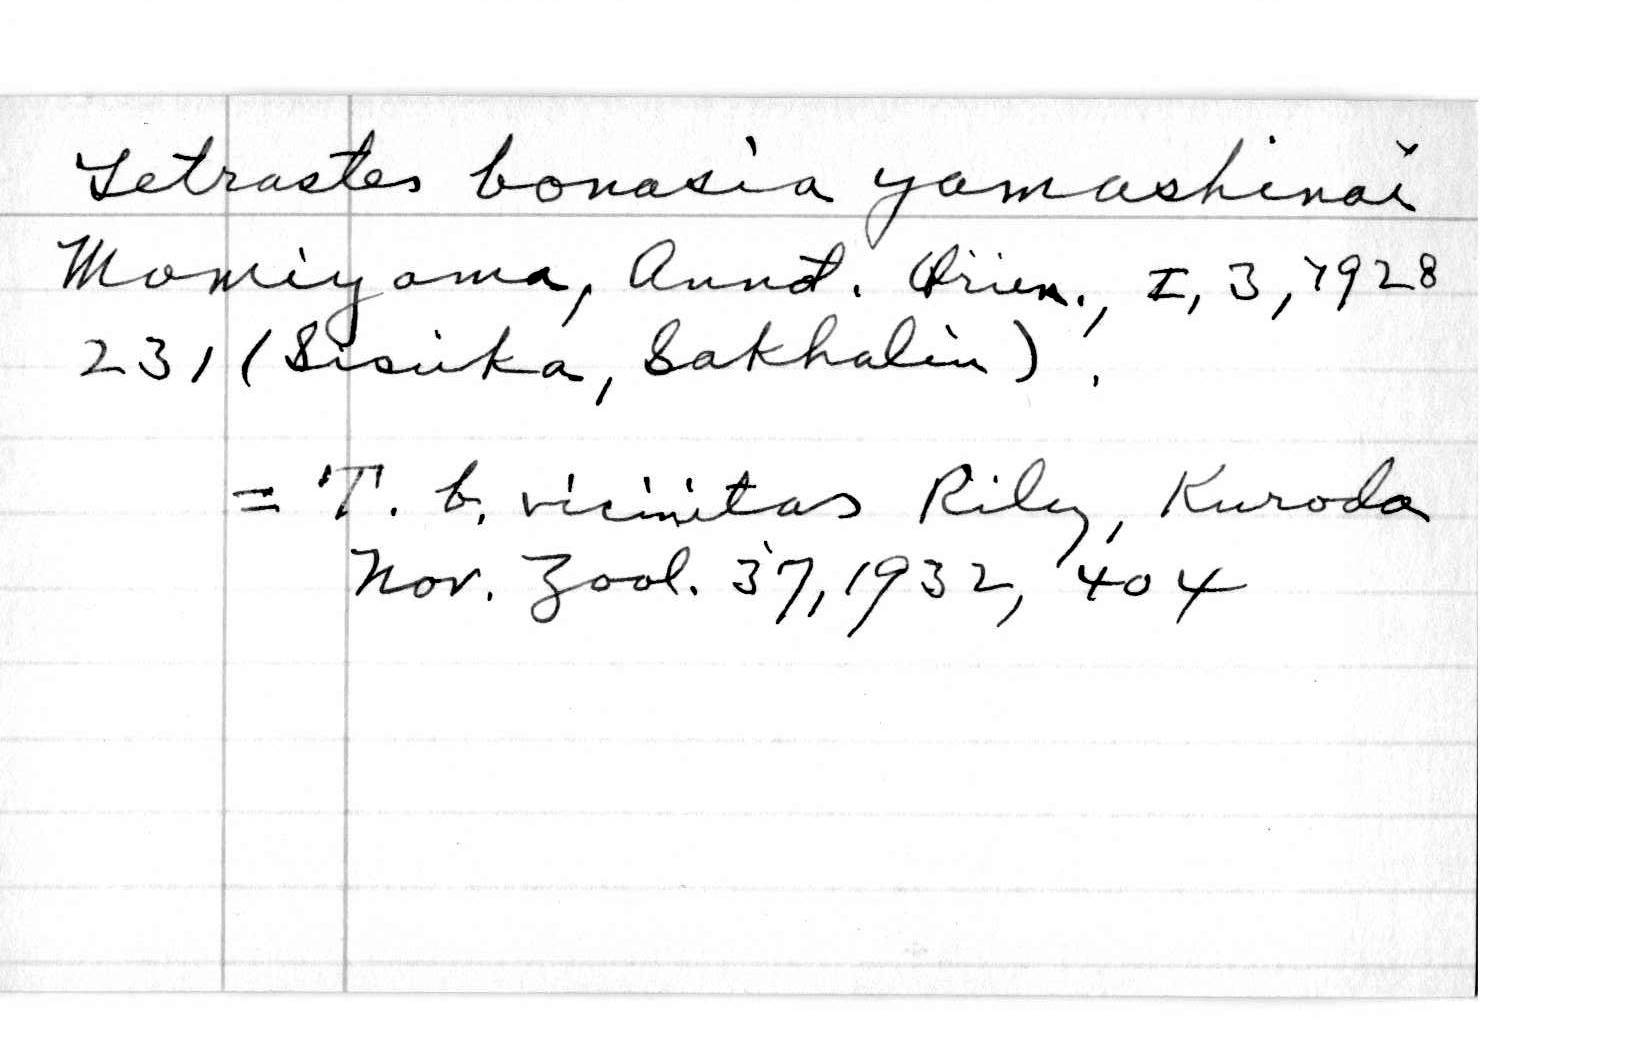 Tetrastes bonasia yamashinai
Momiyama, Annot. Orien., I, 3, 1928
231 (Sisuka, Sakhalin).
= T. b. vicinitas Riley, Kuroda
Nov. Zool. 37, 1932, 404